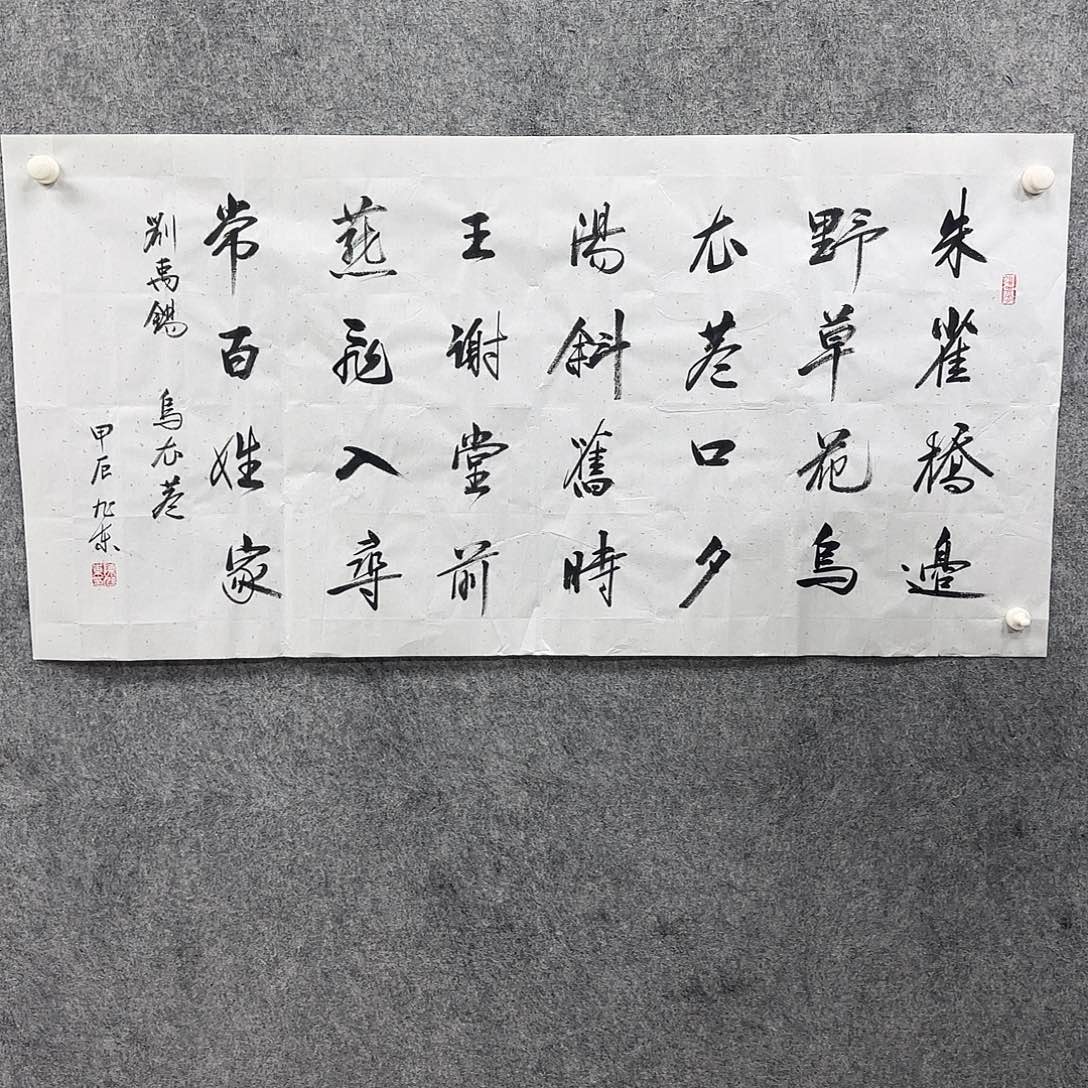 朱雀橋邊
野草花烏
衣巷口夕
陽斜舊時
王謝堂前
燕飛入尋
常百姓家
劉禹錫 烏衣巷
甲辰 旭东